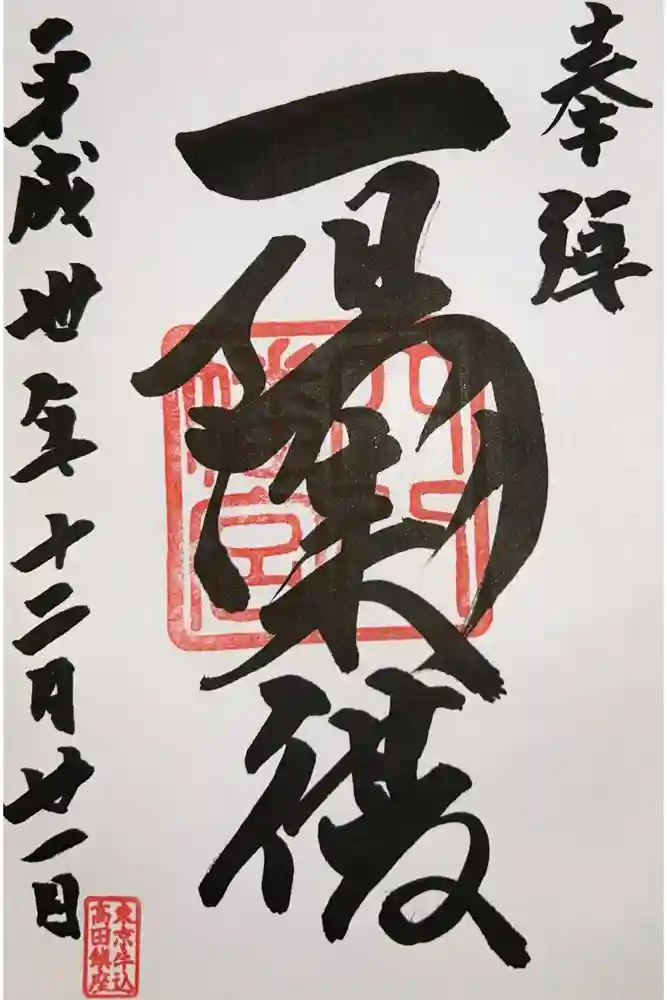 奉拝
一陽来復
平成丗年十二月廿一日
東京牛込
高田鎮座